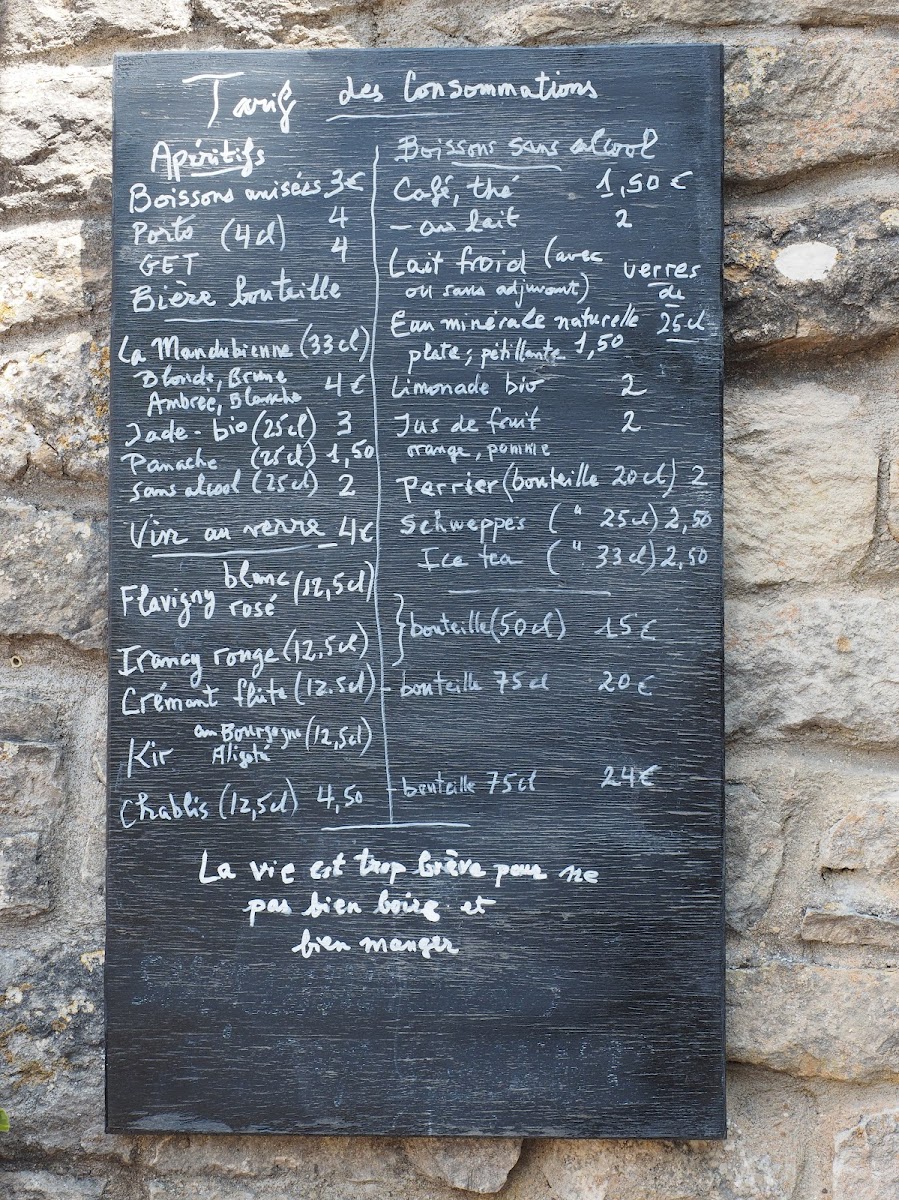 Tarif des Consommations
Apéritifs
Boissons anisées 3€
Porto (4cl) 4
GET 4
Bière bouteille
La Mandubienne (33cl)
Blonde, Brune 4€
Ambrée, Blanche
Jade-bio (25cl) 3
Panache (25cl) 1,50
Sans alcool (25cl) 2
Vin au verre 4€
blanc
Flavigny rosé (12,5cl)
Irancy rouge (12,5cl)
Crémant flûte (12,5cl)
Kir au Bourgogne (12,5cl)
Aligoté
Chablis (12,5cl) 4,50
Boissons sans alcool
Café, thé 1,50€
- au lait 2
Lait froid (avec
ou sans adjuvant) verres
de
Eau minérale naturelle 25cl
plate, pétillante 1,50
Limonade bio 2
Jus de fruit 2
orange, pomme
Perrier (bouteille 20cl) 2
Schweppes (" 25cl) 2,50
Ice tea (" 33cl) 2,50
} bouteille (50cl) 15€
- bouteille 75cl 20€
- bouteille 75cl 24€
La vie est trop brève pour ne
pas bien boire et
bien manger